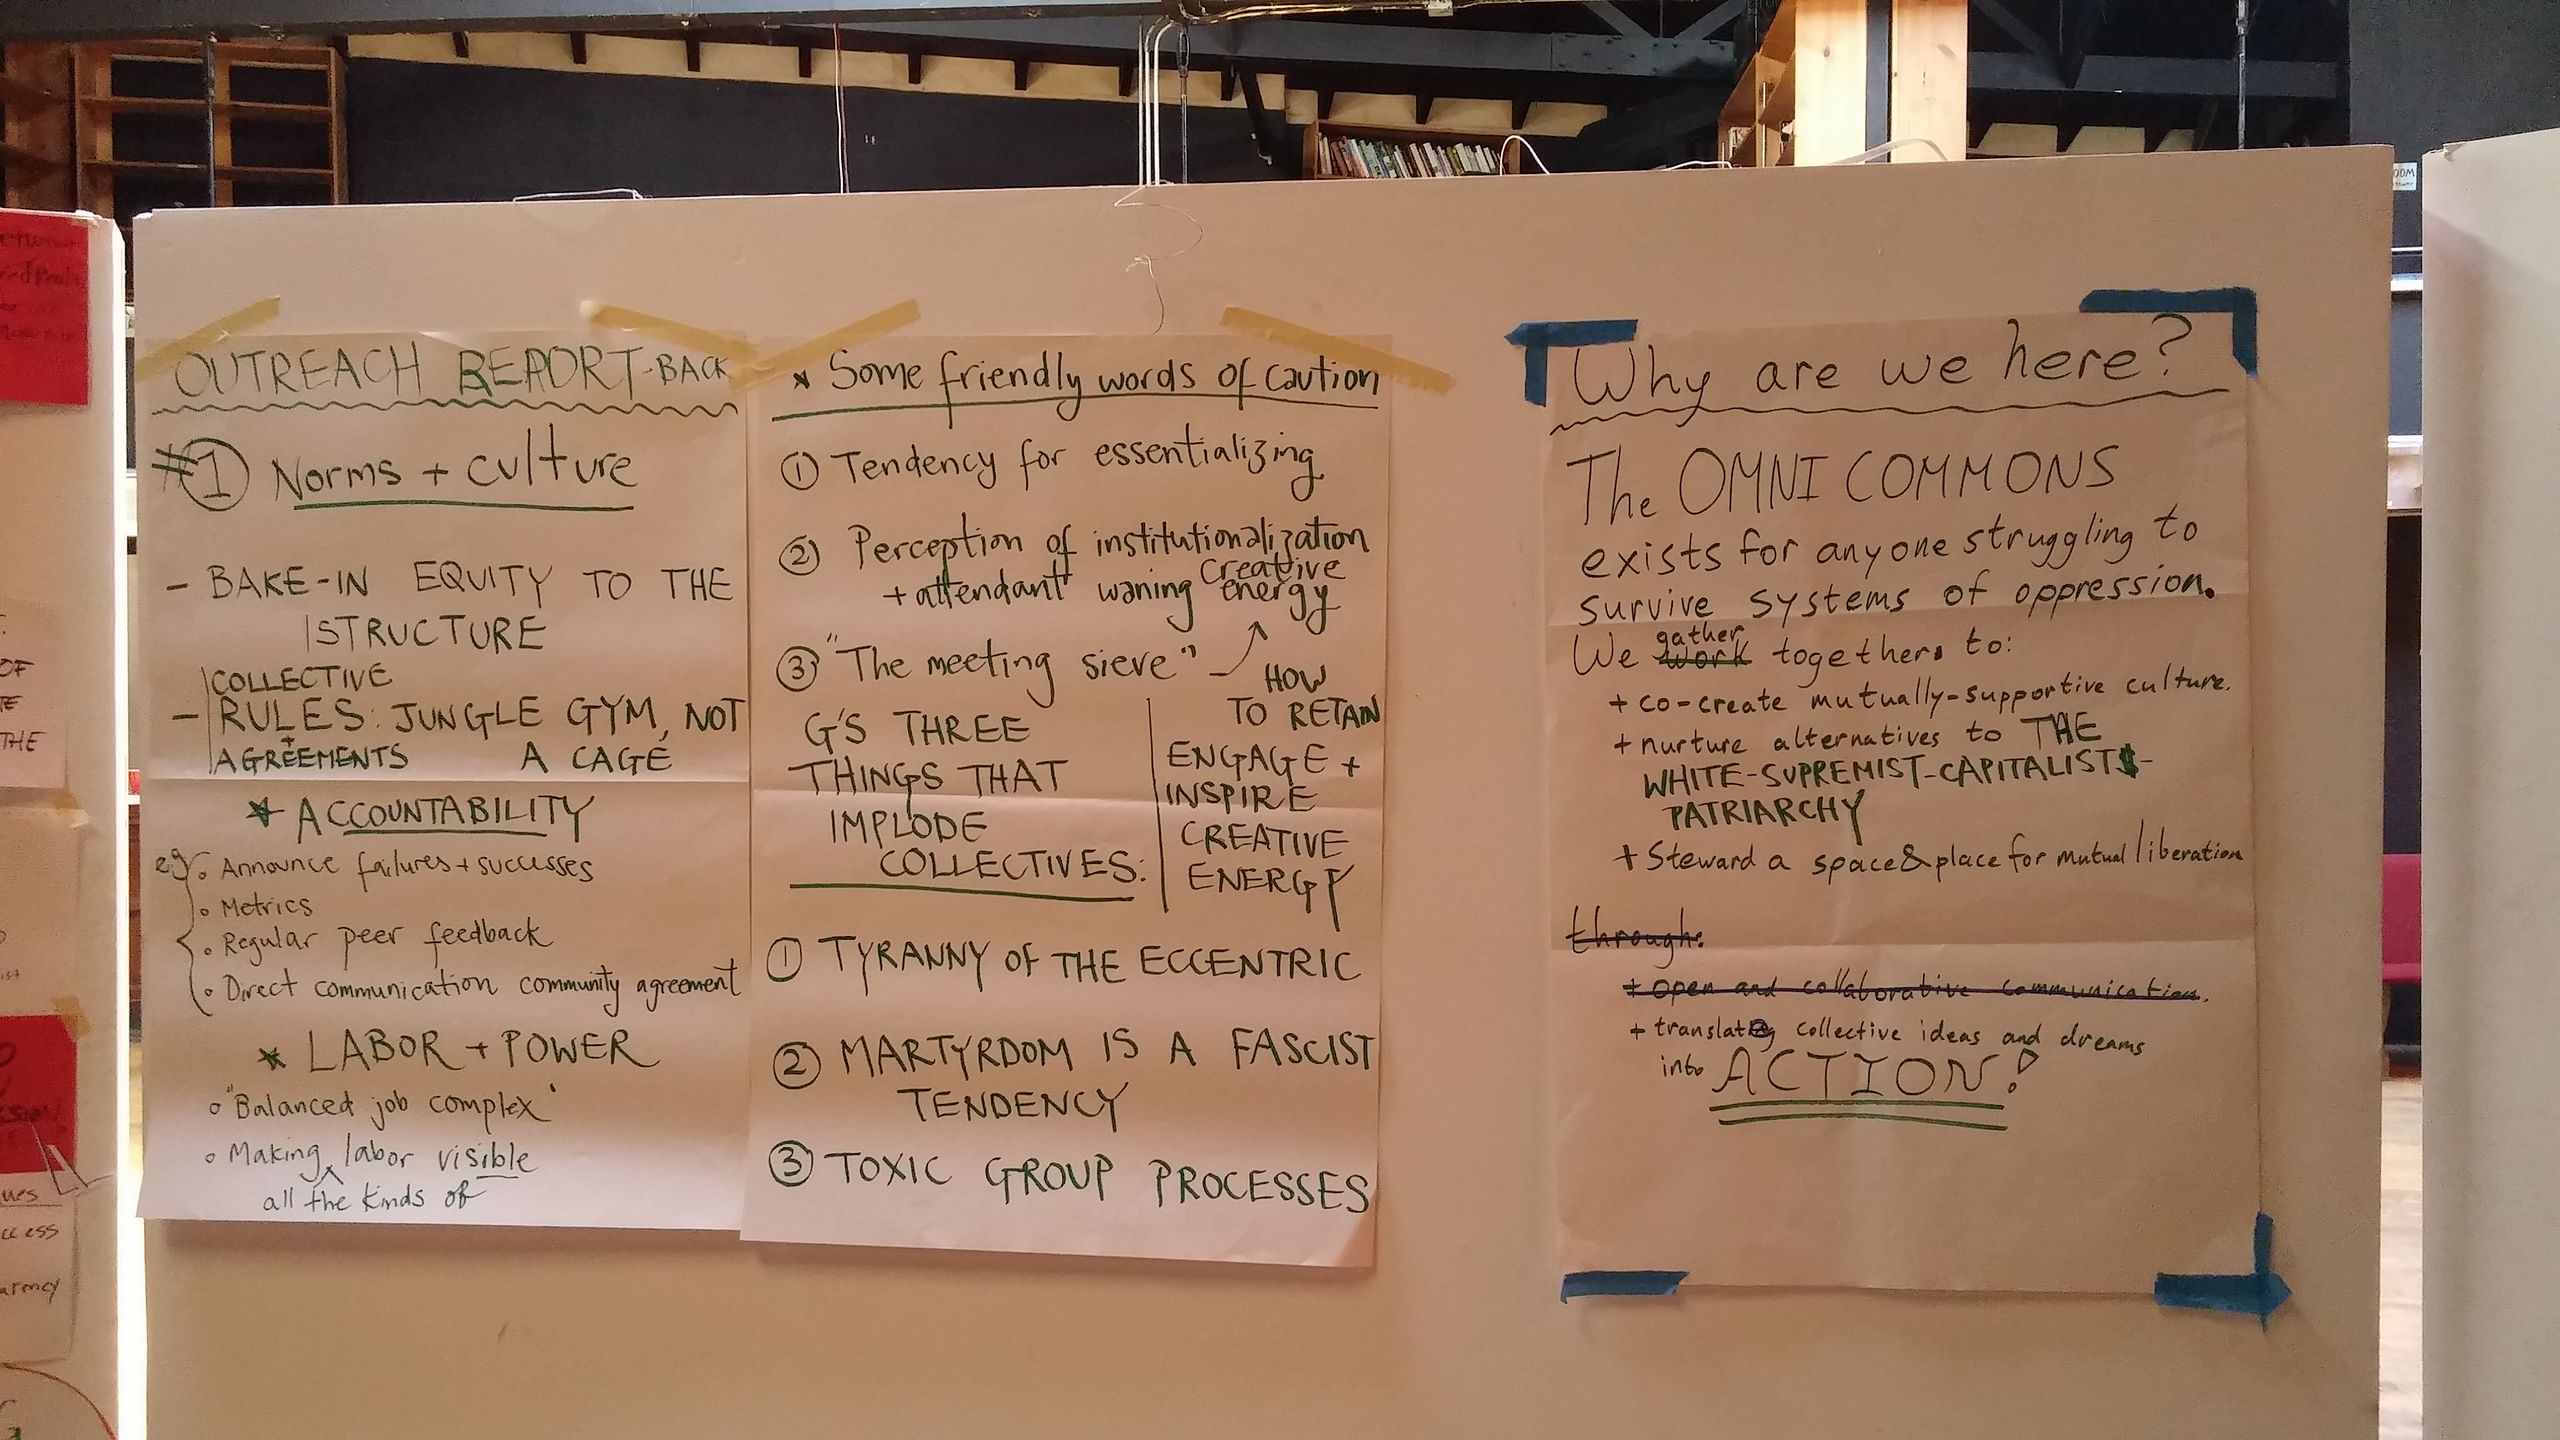 OUTREACH REPORT-BACK
#1 Norms + culture
- BAKE-IN EQUITY TO THE
STRUCTURE
COLLECTIVE
- RULES: JUNGLE GYM, NOT
+
AGREEMENTS A CAGE
* ACCOUNTABILITY
e.g. • Announce failures + successes
• Metrics
• Regular peer feedback
• Direct communication community agreement
* LABOR + POWER
• "Balanced job complex"
• Making labor visible
all the kinds of
* Some friendly words of caution
① Tendency for essentializing
② Perception of institutionalization
+ attendant waning creative energy
③ "The meeting sieve"
HOW
TO RETAIN
ENGAGE +
INSPIRE
CREATIVE
ENERGY
G'S THREE
THINGS THAT
IMPLODE
COLLECTIVES:
① TYRANNY OF THE ECCENTRIC
② MARTYRDOM IS A FASCIST
TENDENCY
③ TOXIC GROUP PROCESSES
Why are we here?
The OMNI COMMONS
exists for anyone struggling to
survive systems of oppression.
gather
We work together to:
+ co-create mutually-supportive culture.
+ nurture alternatives to THE
WHITE-SUPREMIST-CAPITALIST$-
PATRIARCHY
+ Steward a space & place for mutual liberation
through:
+ open and collaborative communication.
+ translate collective ideas and dreams
into ACTION!
OF
THE
ues
ccess